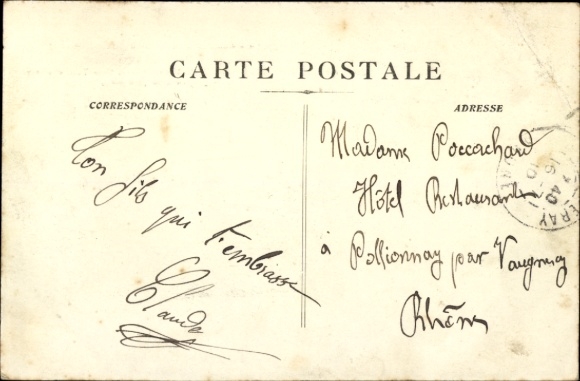 CARTE POSTALE
CORRESPONDANCE
Ton fils qui t'embrasse
Claude
ADRESSE
Madame Poccachard
Hôtel Restaurant
à Pollionnay par Vaugneray
Rhône